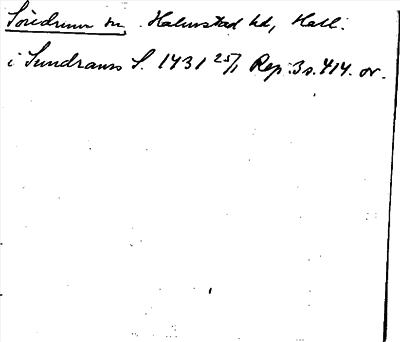 Söndrum sn Halmstad hd, Hall.
i Sundrams S. 1431 25/1 Rep. 3 s. 414. or.